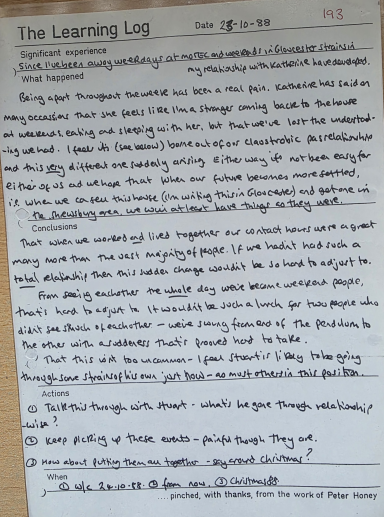 193
The Learning Log
Date 23-10-88
Significant experience
Since I've been away weekdays at MOTEC and weekends in Gloucester strains in
What happened
my relationship with Katherine have developed.
Being apart throughout the week has been a real pain. Katherine has said on
many occassions that she feels like I'm a stranger coming back to the house
at weekends, eating and sleeping with her, but that we've lost the understand-
-ing we had. I feel it's (see below) borne out of our claustrobic past relationship
and this very different one suddenly arising. Either way it's not been easy for
either of us and we hope that when our future becomes more settled,
i.e. when we can sell this house (I'm writing this in Gloucester) and got one in
the Shrewsbury area, we will at least have things as they were.
Conclusions
That when we worked and lived together our contact hours were a great
many more than the vast majority of people. If we hadn't had such a
total relationship then this sudden change wouldn't be so hard to adjust to.
From seeing eachother the whole day we've become weekend people,
that's hard to adjust to. It wouldn't be such a lurch for two people who
didn't see so much of eachother - we've swung from end of the pendulum to
the other with a suddeness that's proved hard to take.
That this isn't too uncommon - I feel Stuart is likely to be going
through some strains of his own just now - as must others in this position.
Actions
① Talk this through with Stuart - what's he gone through relationship
-wise?
② Keep picking up these events - painful though they are.
③ How about putting them all together - say around Christmas?
When
① w/c 24.10.88. ② from now. ③ Christmas 88
....pinched, with thanks, from the work of Peter Honey